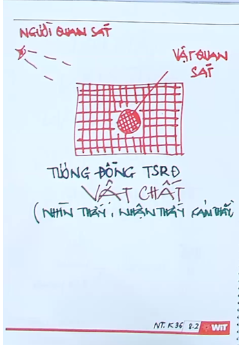 NGƯỜI QUAN SÁT
VẬT QUAN
SÁT
TƯƠNG ĐỒNG TSRĐ
VẬT CHẤT
(NHÌN THẤY, NHẬN THẤY, CẢM THẤY
NT. K36 8.2 WIT